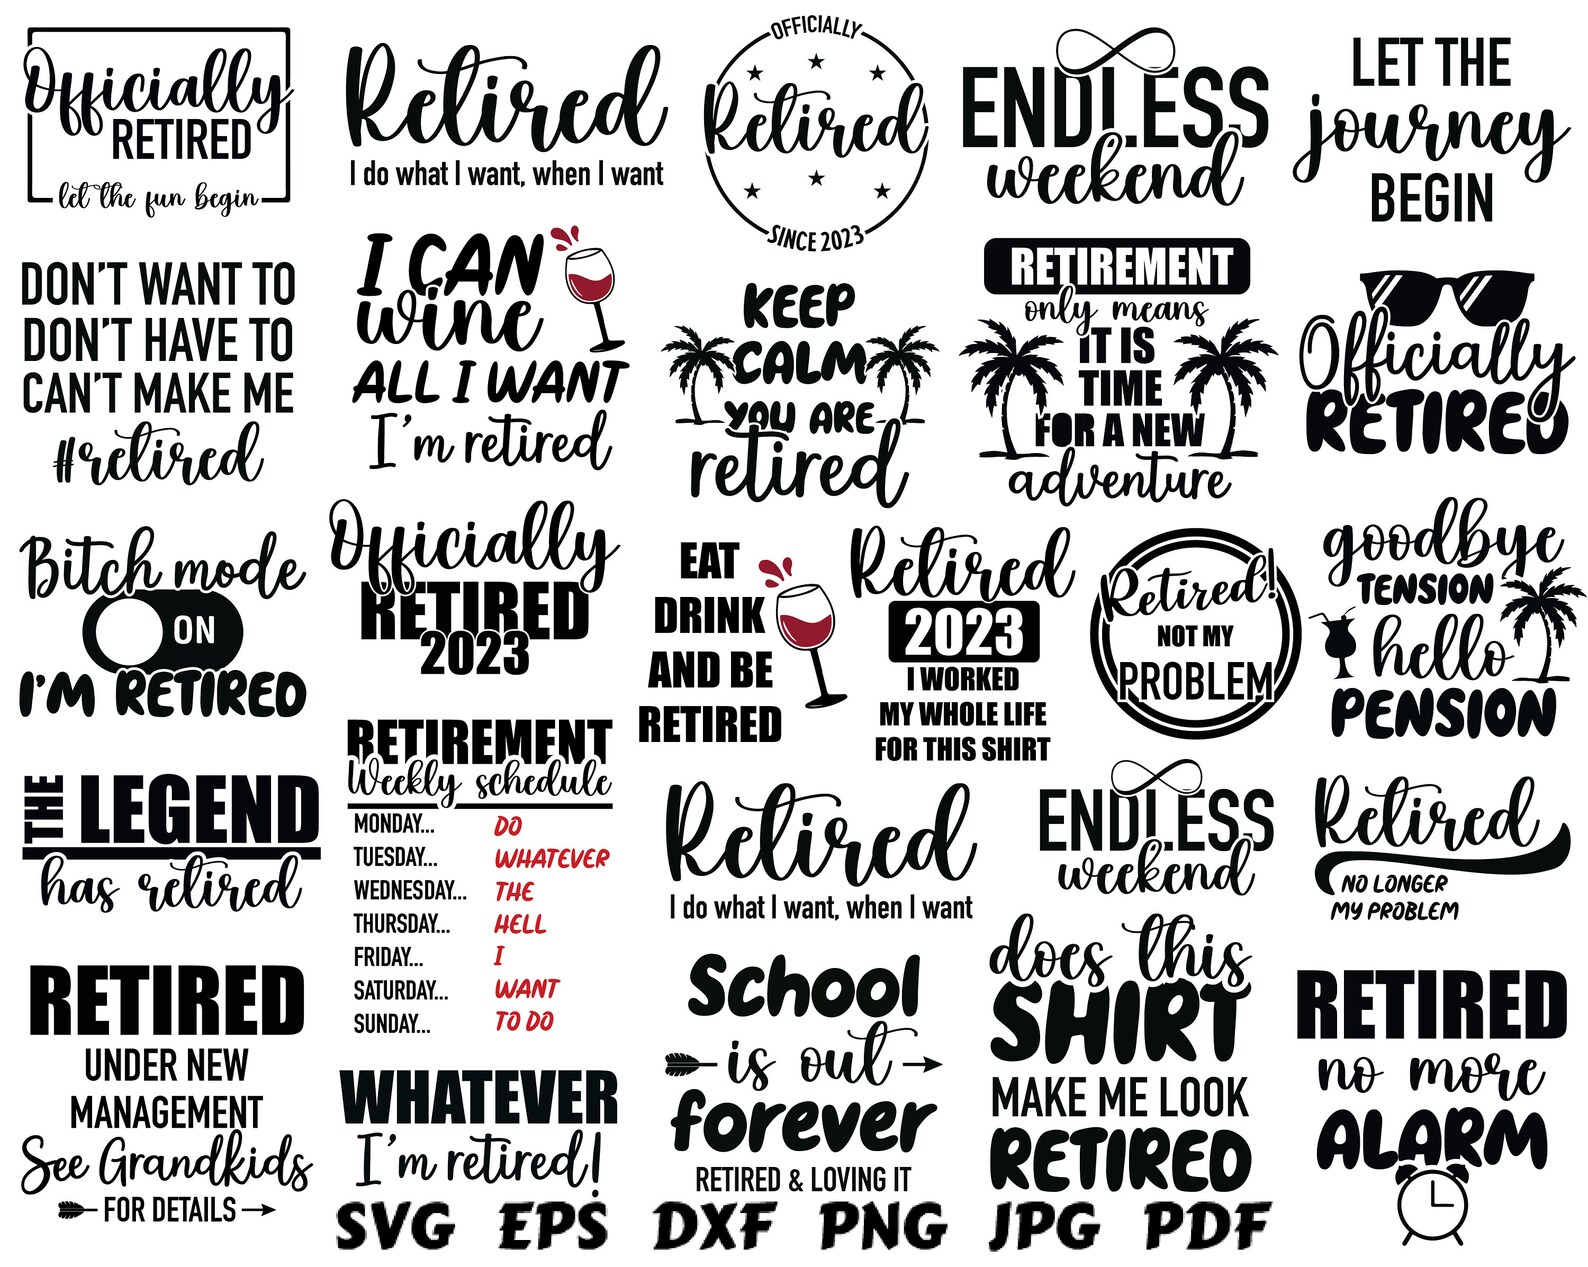 Officially
RETIRED
let the fun begin
Retired
I do what I want, when I want
OFFICIALLY
Retired
SINCE 2023
ENDLESS
weekend
LET THE
journey
BEGIN
DON'T WANT TO
DON'T HAVE TO
CAN'T MAKE ME
#retired
I CAN
wine
ALL I WANT
I'm retired
KEEP
CALM
YOU ARE
retired
RETIREMENT
only means
IT IS
TIME
FOR A NEW
adventure
Officially
RETIRED
Bitch mode
ON
I'M RETIRED
Officially
RETIRED
2023
EAT
DRINK
AND BE
RETIRED
Retired
2023
I WORKED
MY WHOLE LIFE
FOR THIS SHIRT
Retired!
NOT MY
PROBLEM
goodbye
TENSION
hello
PENSION
THE LEGEND
has retired
RETIREMENT
Weekly schedule
MONDAY... DO
TUESDAY... WHATEVER
WEDNESDAY... THE
THURSDAY... HELL
FRIDAY... I
SATURDAY... WANT
SUNDAY... TO DO
Retired
I do what I want, when I want
ENDLESS
weekend
Retired
NO LONGER
MY PROBLEM
RETIRED
UNDER NEW
MANAGEMENT
See Grandkids
FOR DETAILS
WHATEVER
I'm retired!
School
is out
forever
RETIRED & LOVING IT
does this
SHIRT
MAKE ME LOOK
RETIRED
RETIRED
no more
ALARM
SVG EPS DXF PNG JPG PDF